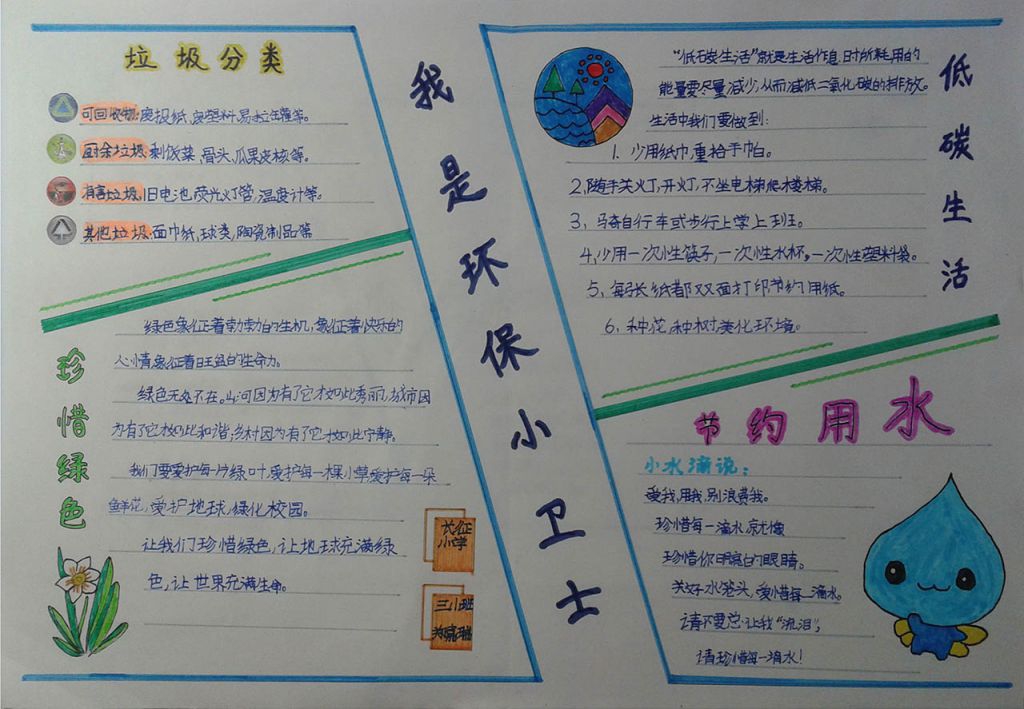 我是环保小卫士
垃圾分类
可回收物:废报纸,废塑料,易拉罐等。
厨余垃圾:剩饭菜,骨头,瓜果皮核等。
有害垃圾:旧电池,荧光灯管,温度计等。
其他垃圾:面巾纸,球类,陶瓷制品等
珍惜绿色
绿色象征着勃勃的生机,象征着快乐的
心情,象征着旺盛的生命力。
绿色无处不在。山河因为有了它才如此秀丽,城市因
为有了它才如此和谐,乡村因为有了它才如此宁静。
我们要爱护每一片绿叶,爱护每一棵小草,爱护每一朵
鲜花,爱护地球,绿化校园。
让我们珍惜绿色,让地球充满绿
色,让世界充满生命。
长征
小学
三八班
低碳生活
“低碳生活”就是生活作息时所耗用的
能量要尽量减少,从而减低二氧化碳的排放。
生活中我们要做到:
1. 少用纸巾,重拾手帕。
2,随手关灯,开灯,不坐电梯爬楼梯。
3,骑自行车或步行上学上班。
4,少用一次性筷子,一次性水杯,一次性塑料袋。
5,每张纸都双面打印节约用纸。
6,种花,种树,美化环境。
节约用水
小水滴说:
爱我,用我,别浪费我。
珍惜每一滴水就像
珍惜你明亮的眼睛。
关好水龙头,爱惜每一滴水。
请不要总让我“流泪”,
请珍惜每一滴水!